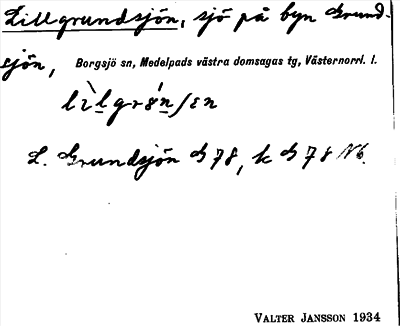 Lillgrundsjön, sjö på byn Grund-
sjön, Borgsjö sn, Medelpads västra domsagas tg, Västernorrl. l.
L. Grundsjön G 78, k G 78 Nb.
VALTER JANSSON 1934